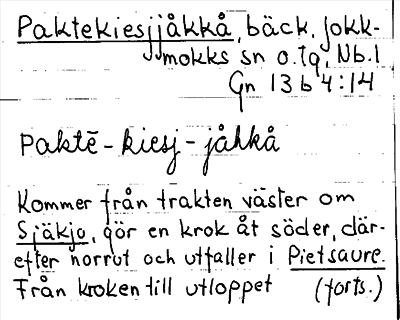 Paktekiesjjåkkå, bäck, Jokk-
mokks sn o. tg, Nb. l
Gn 13 b 4:14
Paktē - kiesj - jåhkå
Kommer från trakten väster om
Sjäkjo, gör en krok åt söder, där-
efter norrut och utfaller i Pietsaure.
Från kroken till utloppet (forts.)